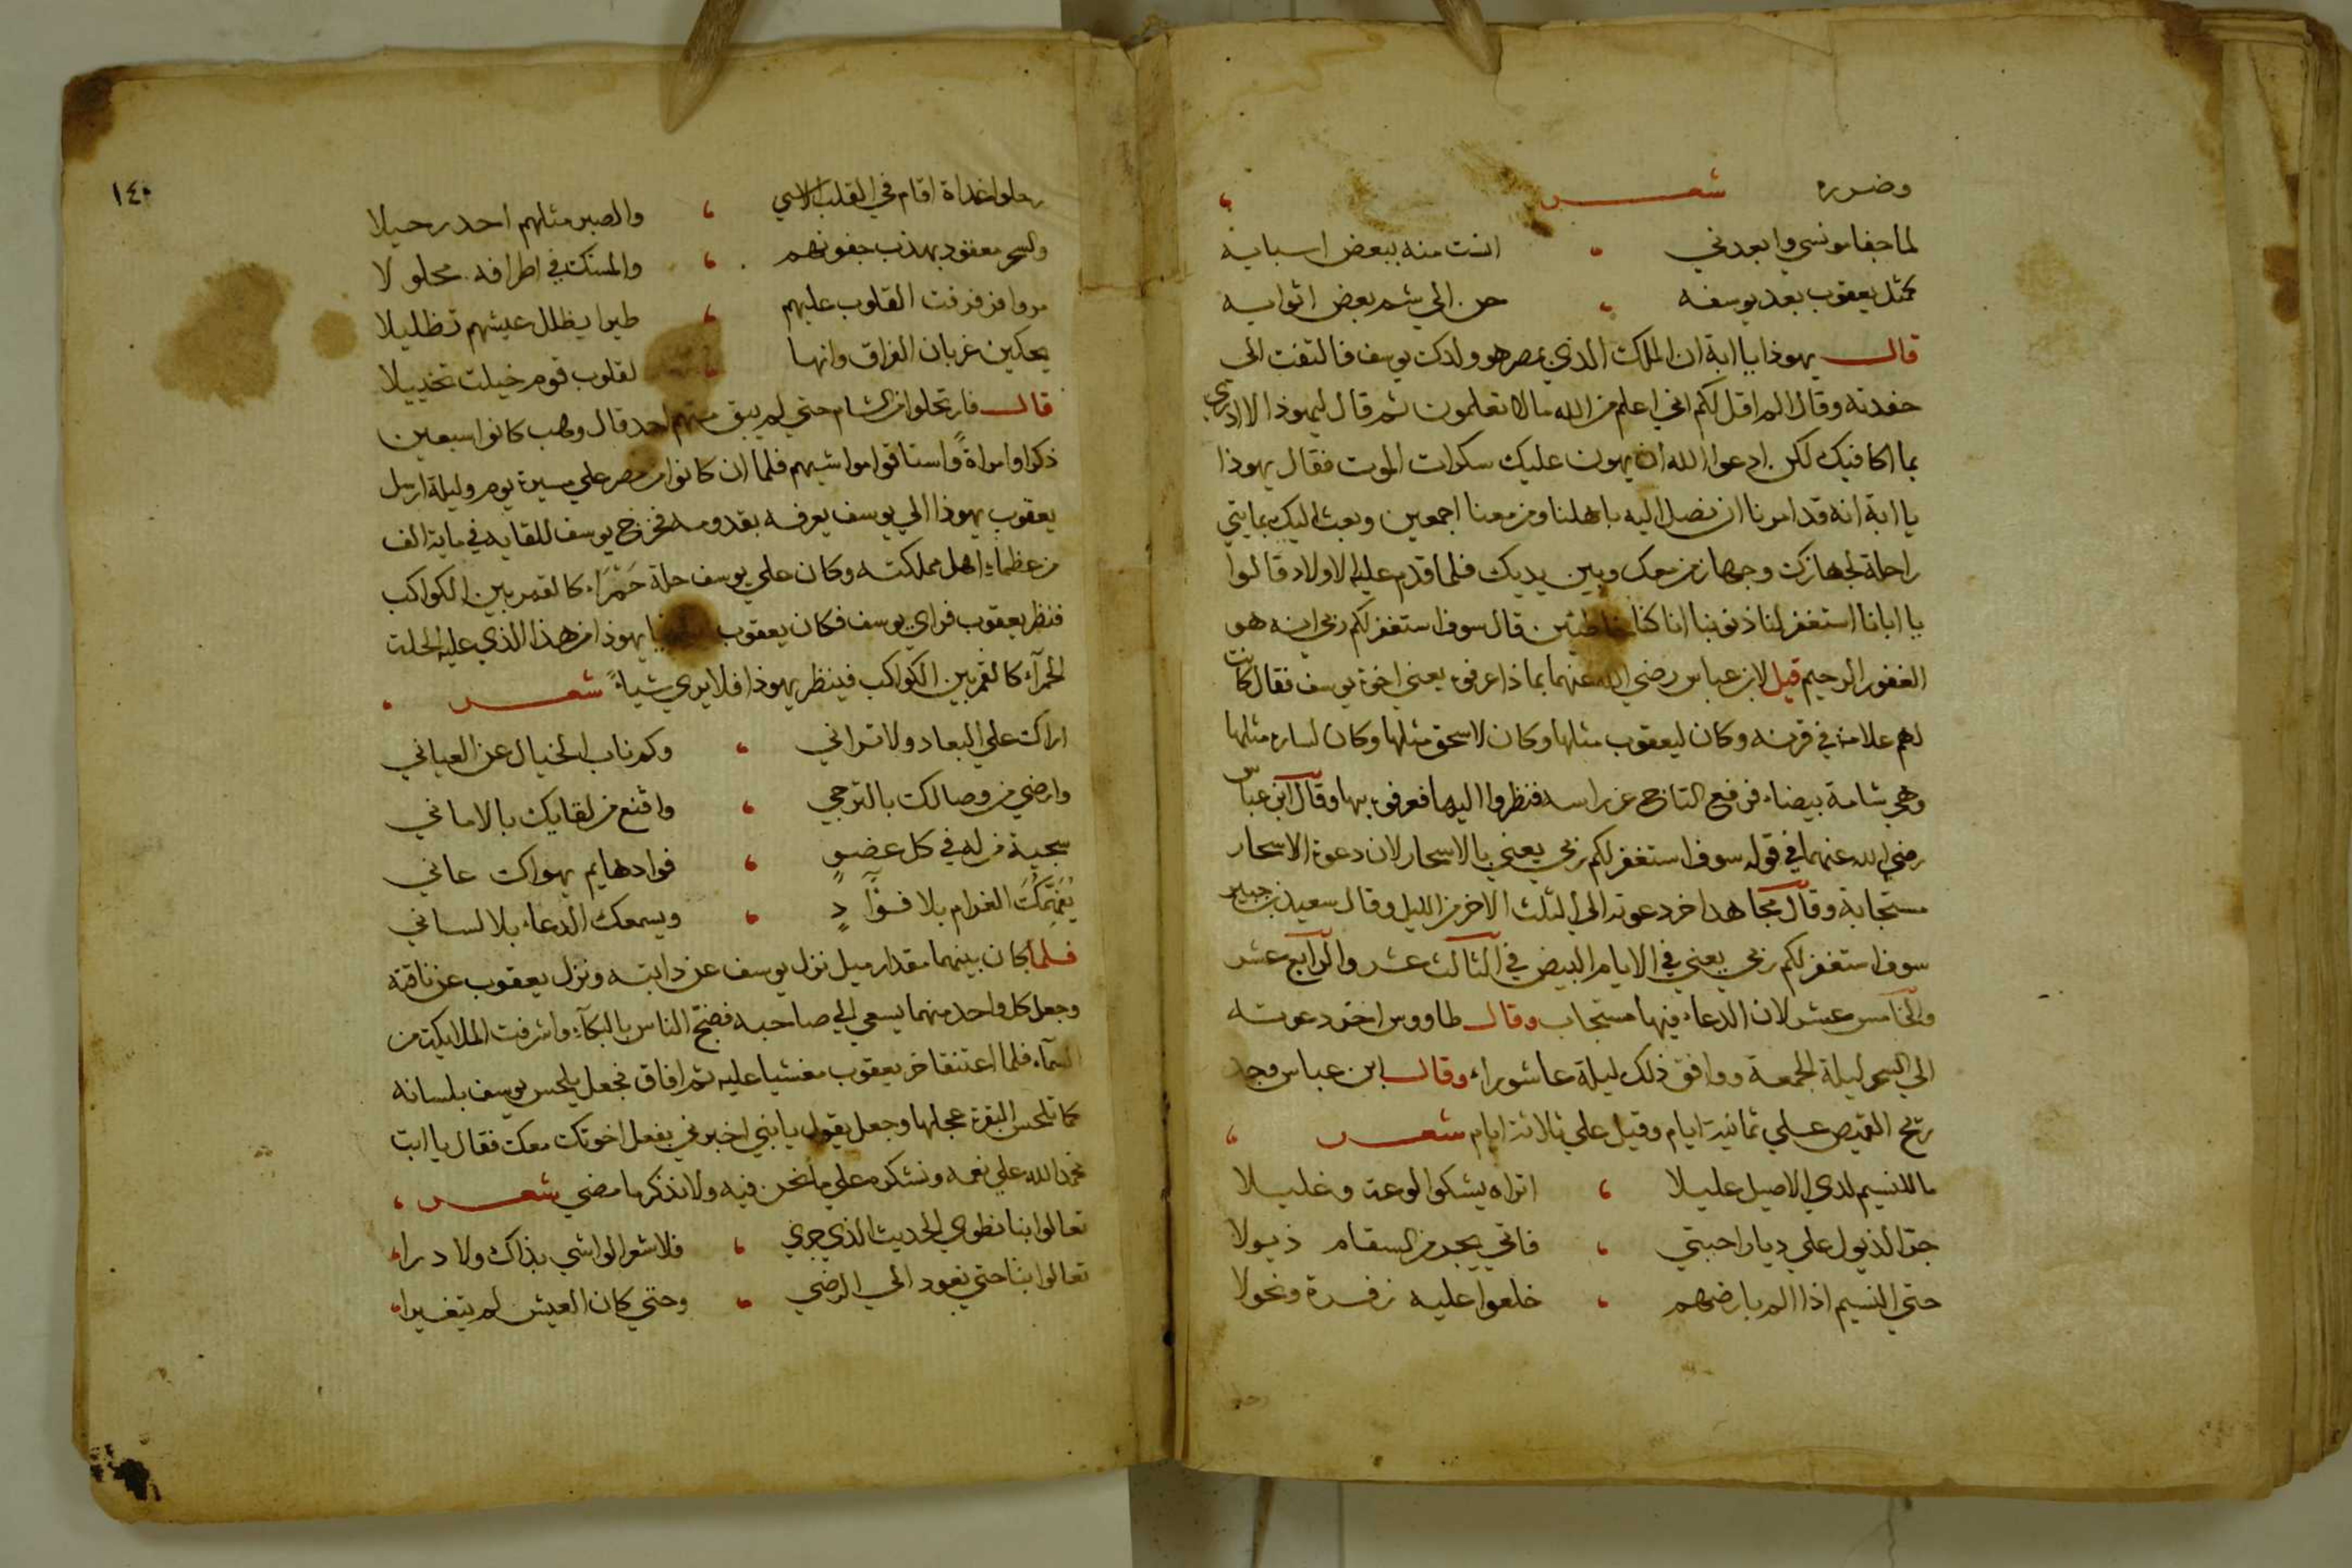 وضره شعر
لما جفا مونسي وابعدني ، انست منه ببعض اسبابه
كمثل يعقوب بعد يوسفه ، حن الي شم بعض اثوابه
قال يهوذا يا ابة ان الملك الذي بمصر هو ولدك يوسف فالتفت الى
حفدته وقال الم اقل لكم اني اعلم من الله مالا تعلمون ثم قال ليهوذا لا ادري
بما اكافيك لكن ادعوا الله ان يهون عليك سكرات الموت فقال يهوذا
يا ابة انه قد امرنا ان نصل اليه باهلنا ومن معنا اجمعين وبعث اليك بمايتي
راحلة لجهازك وجهاز من معك وبين يديك فلما قدم عليه الاولاد قالوا
يا ابانا استغفر لنا ذنوبنا انا كنا خاطيئن قال سوف استغفر لكم ربي انه هو
الغفور الرحيم قيل لابن عباس رضي الله عنهما بماذا عرفوه يعني اخوة يوسف فقال كانت
لهم علامة في قرنه وكان ليعقوب مثلها وكان لاسحق مثلها وكان لساره مثلها
وهي شامة بيضاء فرفع التاج عن راسه فنظروا اليها فعرفوه بها وقال ابن عباس
رضي الله عنهما في قوله سوف استغفر لكم ربي يعني بالاسحار لان دعوة الاسحار
مستجابة وقال مجاهد اخر دعوته الي الثلث الاخر من الليل وقال سعيد بن جبير
سوف استغفر لكم ربي يعني في الايام البيض في الثالث عشر والرابع عشر
والخامس عشر لان الدعاء فيها مستجاب وقال طاووس اخر دعوته
الي السحر ليلة الجمعة ووافق ذلك ليلة عاشوراء وقال ابن عباس وجد
ريح القميص علي ثمانية ايام وقيل علي ثلاثة ايام شعر ،
ما للنسيم لدي الاصيل عليلا ، اتراه يشكوا لوعة وغليلا
جر الذيول علي ديار احبتي ، فاتي يجر من السقام ذيولا
حتي النسيم اذا الم بارضهم ، خلعوا عليه زفرة ونحولا
١٤٠
رحلوا غداة اقام في القلب الاسي ، والصبر مثلهم احد رحيلا
والسحر معقود بهدب جفونهم ، والمسك في اطرافه محلولا
مروا فزفرفت القلوب عليهم ، طيرا يظلل عيشهم تظليلا
يحكين غربان الفراق وانها لقلوب قوم خيلت تخييلا
قال فارتحلوا من الشام حتي لم يبق منهم احد قال وهب كانوا سبعين
ذكرا وامراة واستاقوا مواشيهم فلما ان كانوا من مصر علي مسيرة يوم وليلة ارسل
يعقوب يهوذا الي يوسف يعرفه بقدومه فخرج يوسف للقايه في ماية الف
من عظماء اهل مملكته وكان علي يوسف حلة حمراء كالقمر بين الكواكب
فنظر يعقوب فراي يوسف فكان يعقوب يا يهوذا من هذا الذي عليه الحلة
الحمرآء كالقمر بين الكواكب فينظر يهوذا فلا يري شياء شعر ،
اراك علي البعاد ولا تراني ، وكم ناب الخيال عن العياني
وارضي من وصالك بالترجي ، واقنع من لقايك بالاماني
سجية من له في كل عضو ، فوادهايم بهواك عاني
الغرام بلا فوآد ، ويسمعك الدعاء بلا لساني
فلما كان بينهما مقدار ميل نزل يوسف عن دابته ونزل يعقوب عن ناقته
وجعل كل واحد منهما يسعي الي صاحبه فضج الناس بالبكآء واشرفت الملايكة من
السمآء فلما اعتنقا خر يعقوب مغشيا عليه ثم افاق فجعل يلحس يوسف بلسانه
كما تلحس البقرة عجلها وجعل يقول يا بني اخبرني بفعل اخوتك معك فقال يا ابت
نحمد الله علي نعمه ونشكره علي ما نحن فيه ولا نذكر ما مضي شعر ،
تعالوا بنا نطوي الحديث الذي جري ، فلا شعر الواشي بذاك ولا درا
تعالوا بنا حتي نعود الي الرضي ، وحتي كان العيش لم يتغيرا